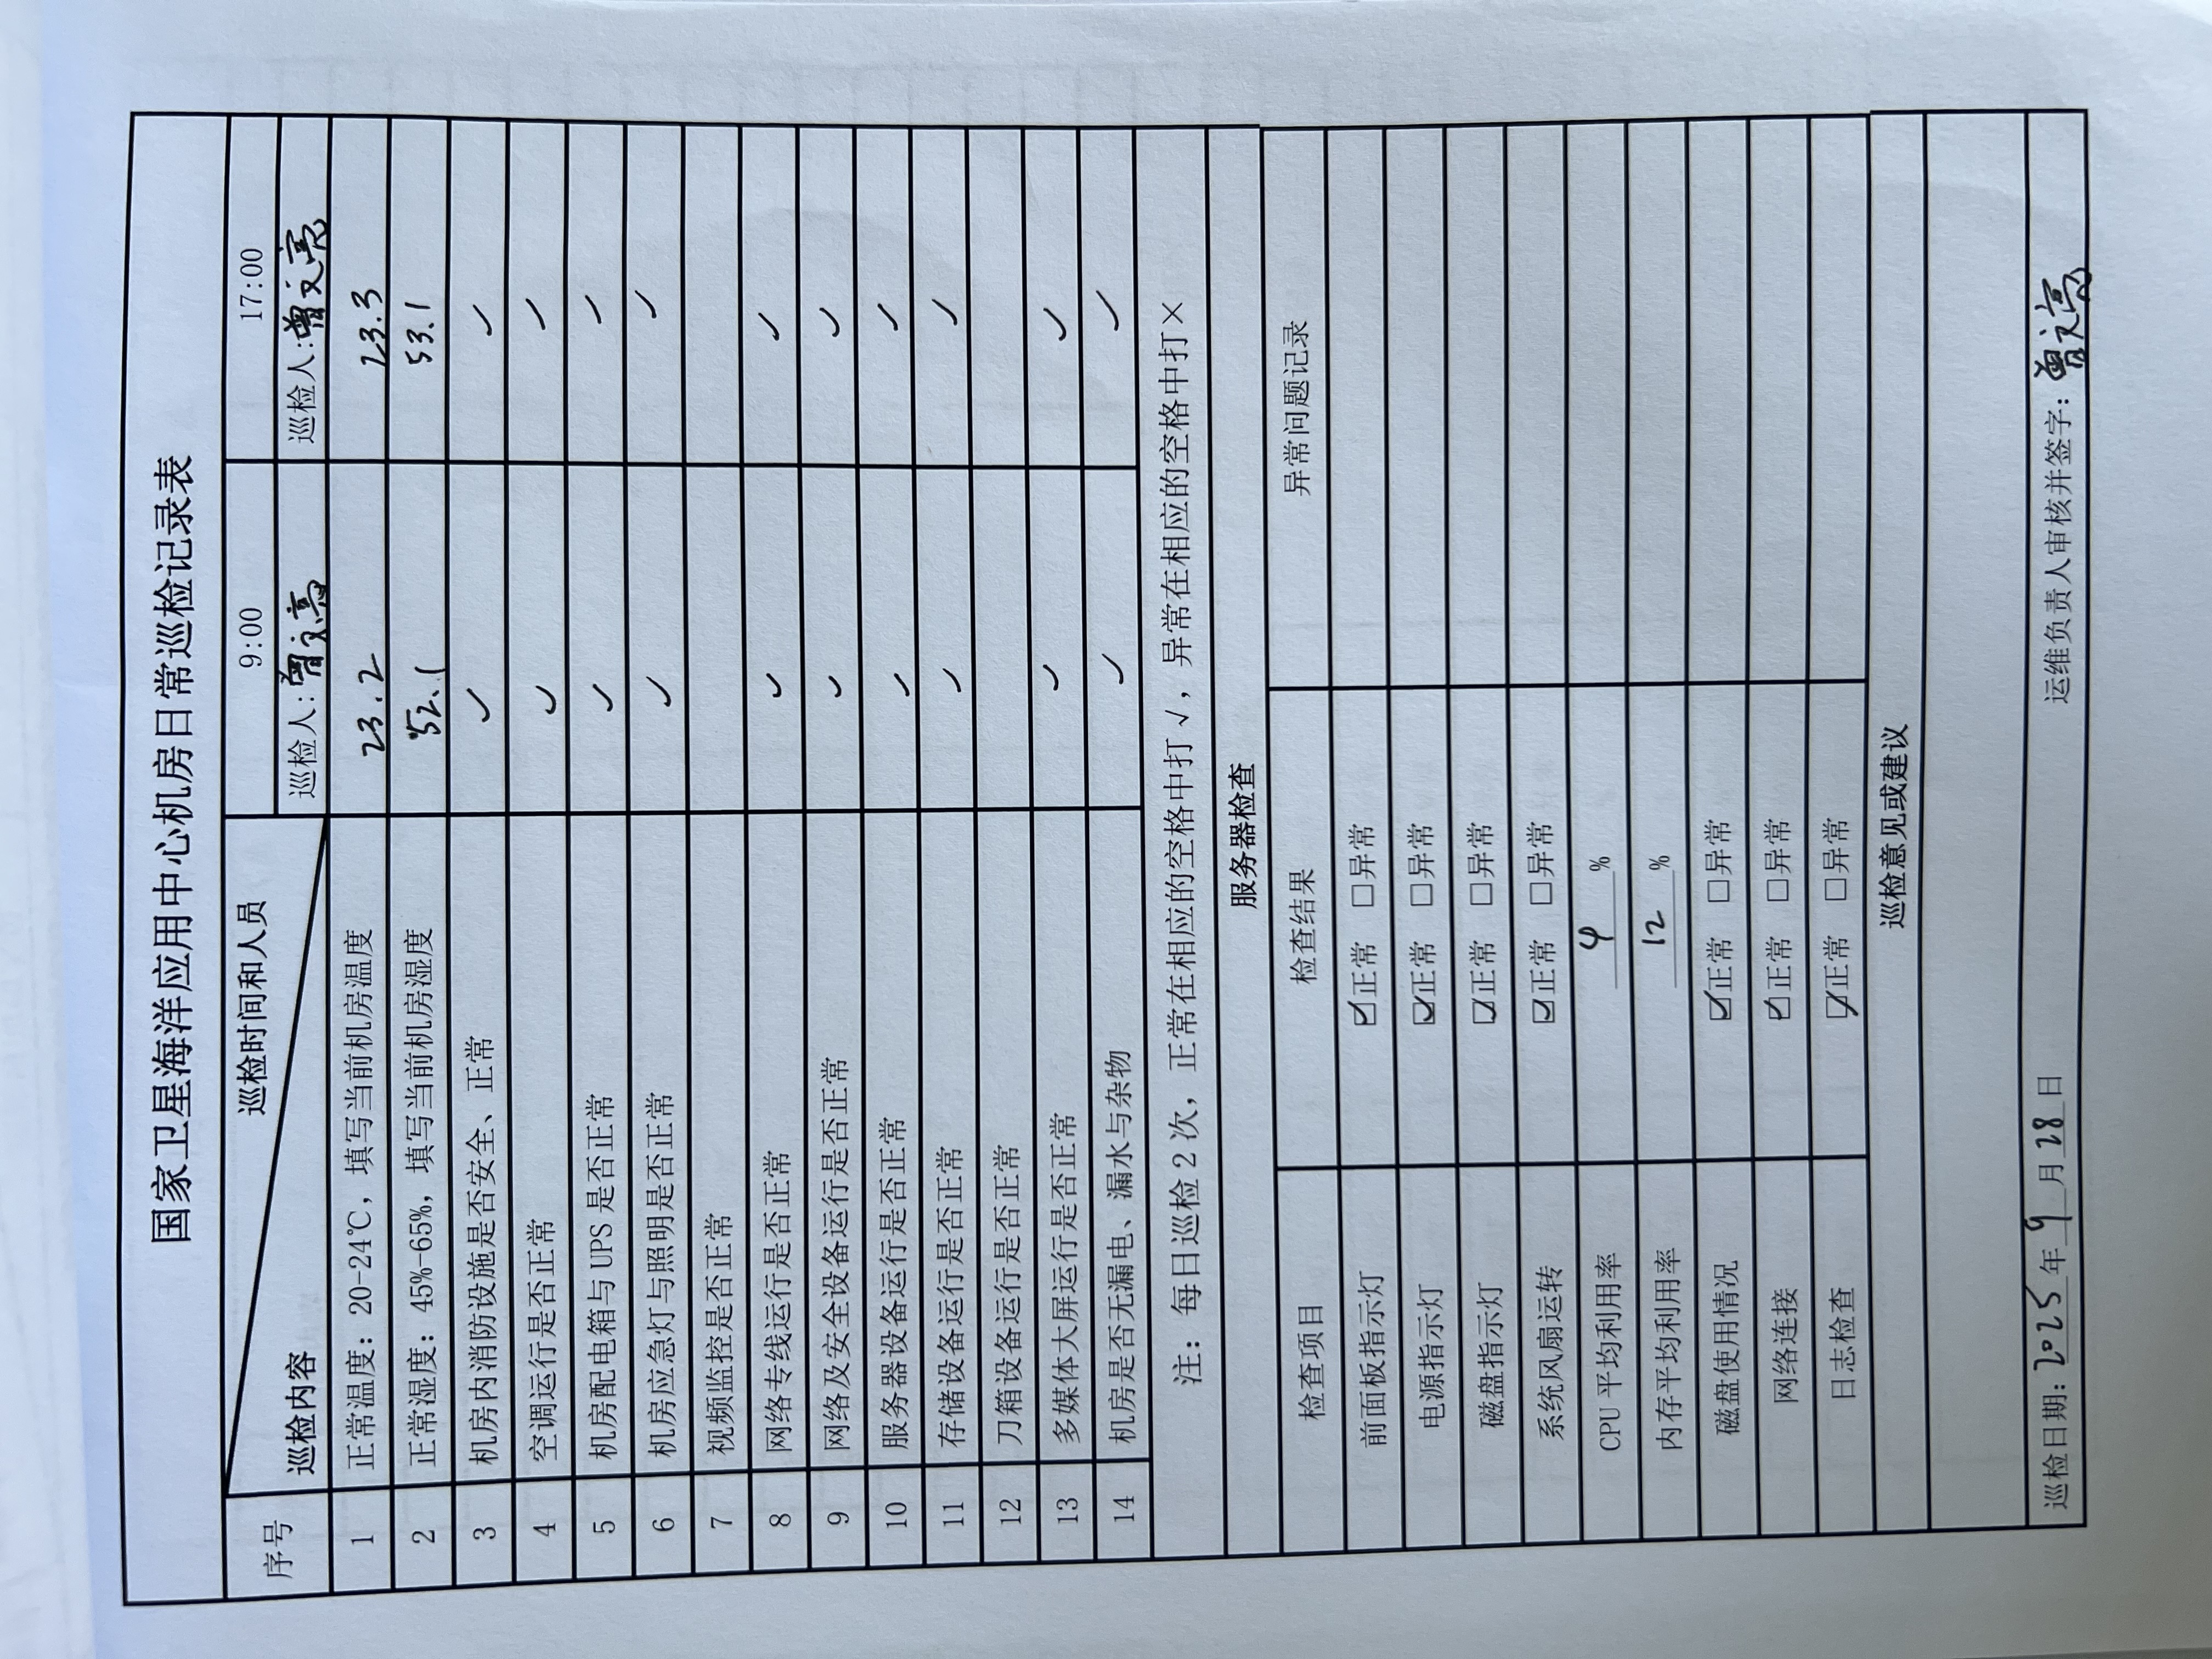 国家卫星海洋应用中心机房日常巡检记录表
序号 巡检内容 巡检时间和人员 9:00 17:00
巡检人:曾文亮 巡检人:曾文亮
1 正常温度：20-24℃，填写当前机房温度 23.2 23.3
2 正常湿度：45%-65%，填写当前机房湿度 52.1 53.1
3 机房内消防设施是否安全、正常 ✓ ✓
4 空调运行是否正常 ✓ ✓
5 机房配电箱与 UPS 是否正常 ✓ ✓
6 机房应急灯与照明是否正常 ✓ ✓
7 视频监控是否正常
8 网络专线运行是否正常 ✓ ✓
9 网络及安全设备运行是否正常 ✓ ✓
10 服务器设备运行是否正常 ✓ ✓
11 存储设备运行是否正常 ✓ ✓
12 刀箱设备运行是否正常
13 多媒体大屏运行是否正常 ✓ ✓
14 机房是否无漏电、漏水与杂物 ✓ ✓
注：每日巡检 2 次，正常在相应的空格中打 √，异常在相应的空格中打×
服务器检查
检查项目 检查结果 异常问题记录
前面板指示灯 ☑正常 □异常
电源指示灯 ☑正常 □异常
磁盘指示灯 ☑正常 □异常
系统风扇运转 ☑正常 □异常
CPU 平均利用率 4 %
内存平均利用率 12 %
磁盘使用情况 ☑正常 □异常
网络连接 ☑正常 □异常
日志检查 ☑正常 □异常
巡检意见或建议
巡检日期: 2025 年 9 月 28 日 运维负责人审核并签字: 曾文亮